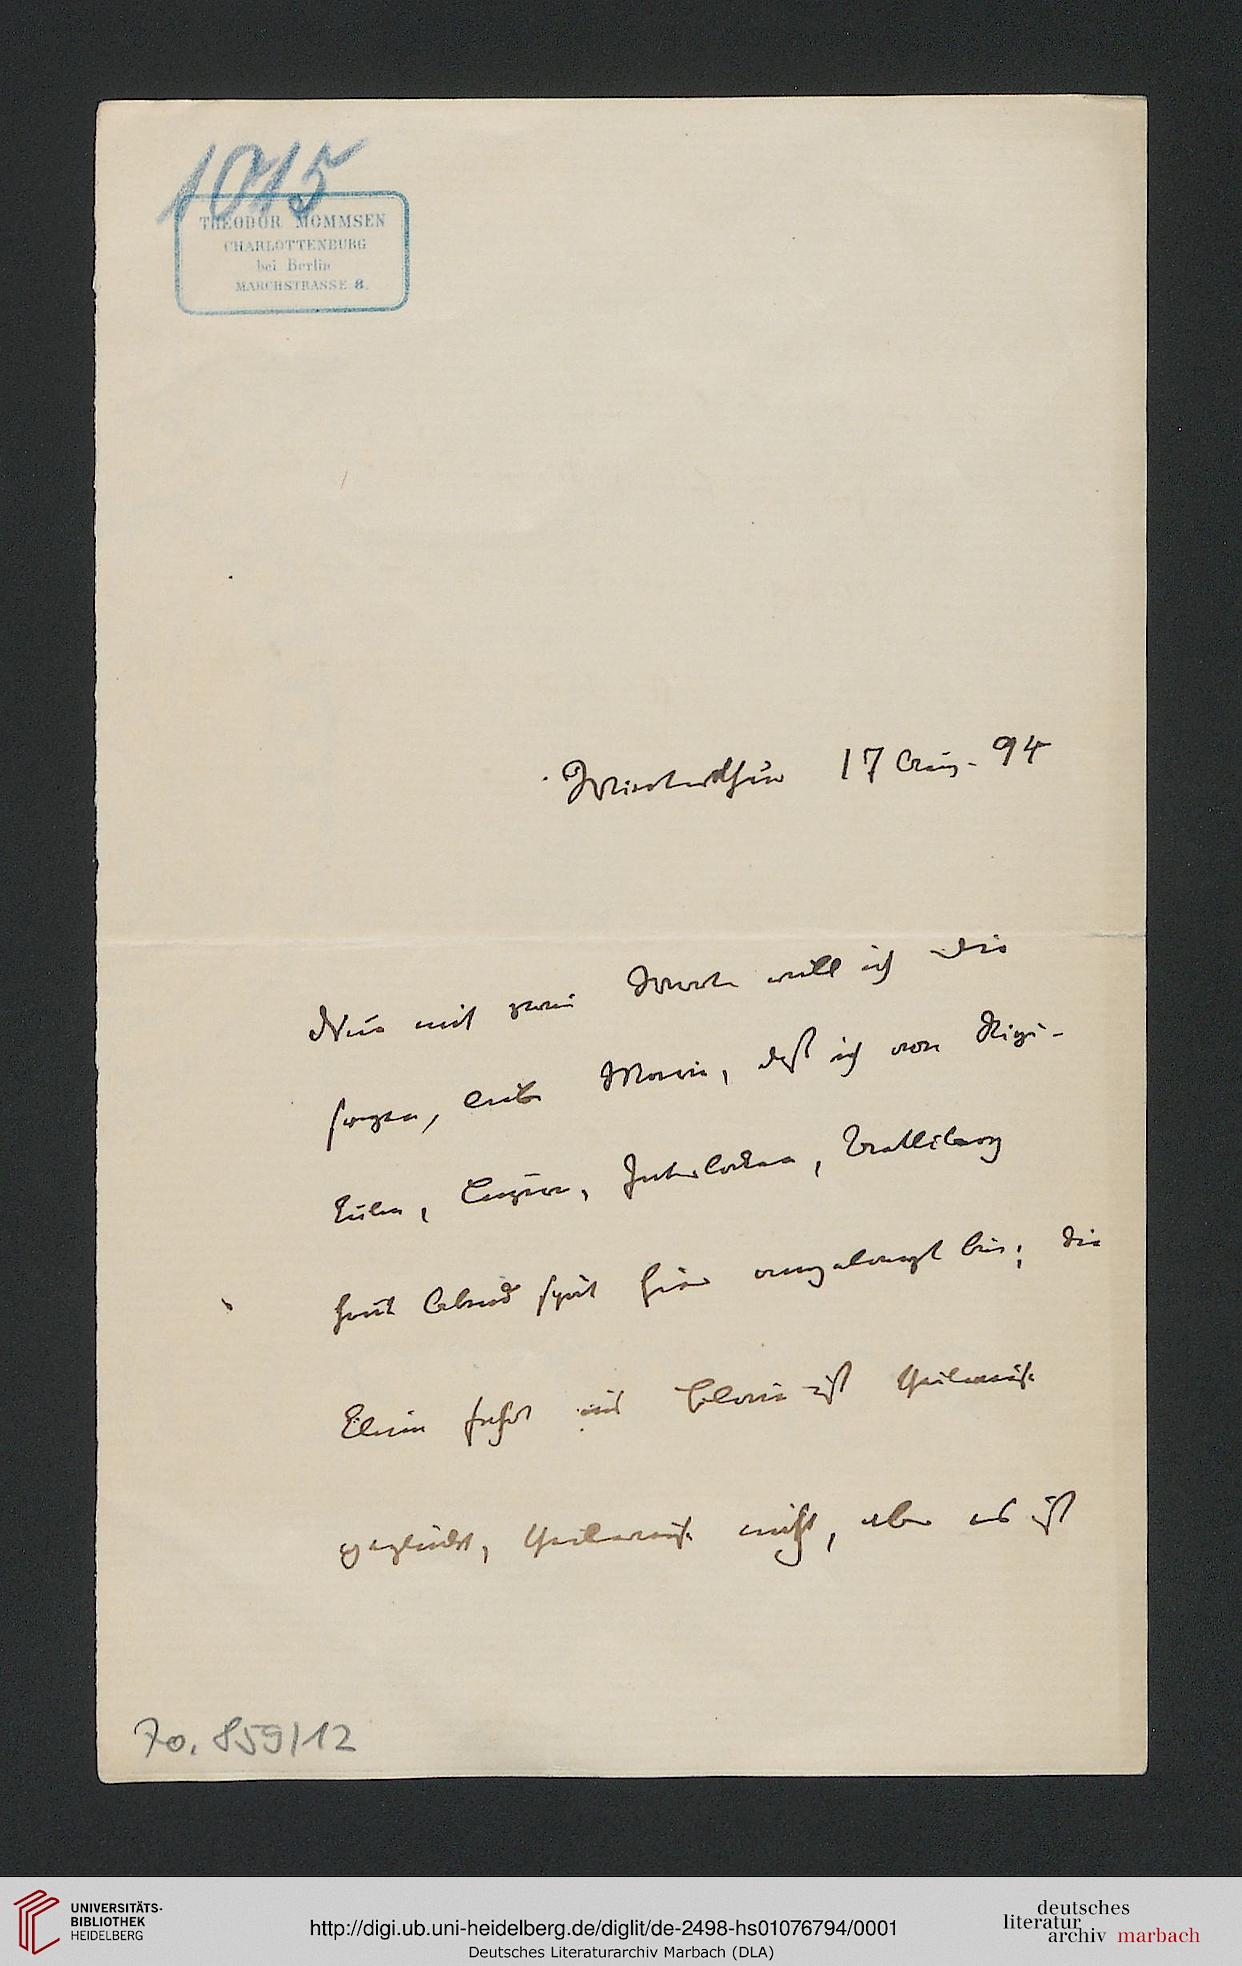 1015
THEODOR MOMMSEN
CHARLOTTENBURG
bei Berlin
MARCHSTRASSE 8.
Winterthur 17 Aug. 94
Nur mit zwei Worte will ich Dir
sagen, liebe Marie, daß ich von Rigi-
Kulm, Luzern, Interlaken,
heut Abend spät hier angelangt bin; die
kleine Fahrt mit ist theilweise
geglückt, theilweise nicht, aber es ist
70.859/12
UNIVERSITÄTS-
BIBLIOTHEK
HEIDELBERG
http://digi.ub.uni-heidelberg.de/diglit/de-2498-hs01076794/0001
Deutsches Literaturarchiv Marbach (DLA)
deutsches
literatur
archiv marbach